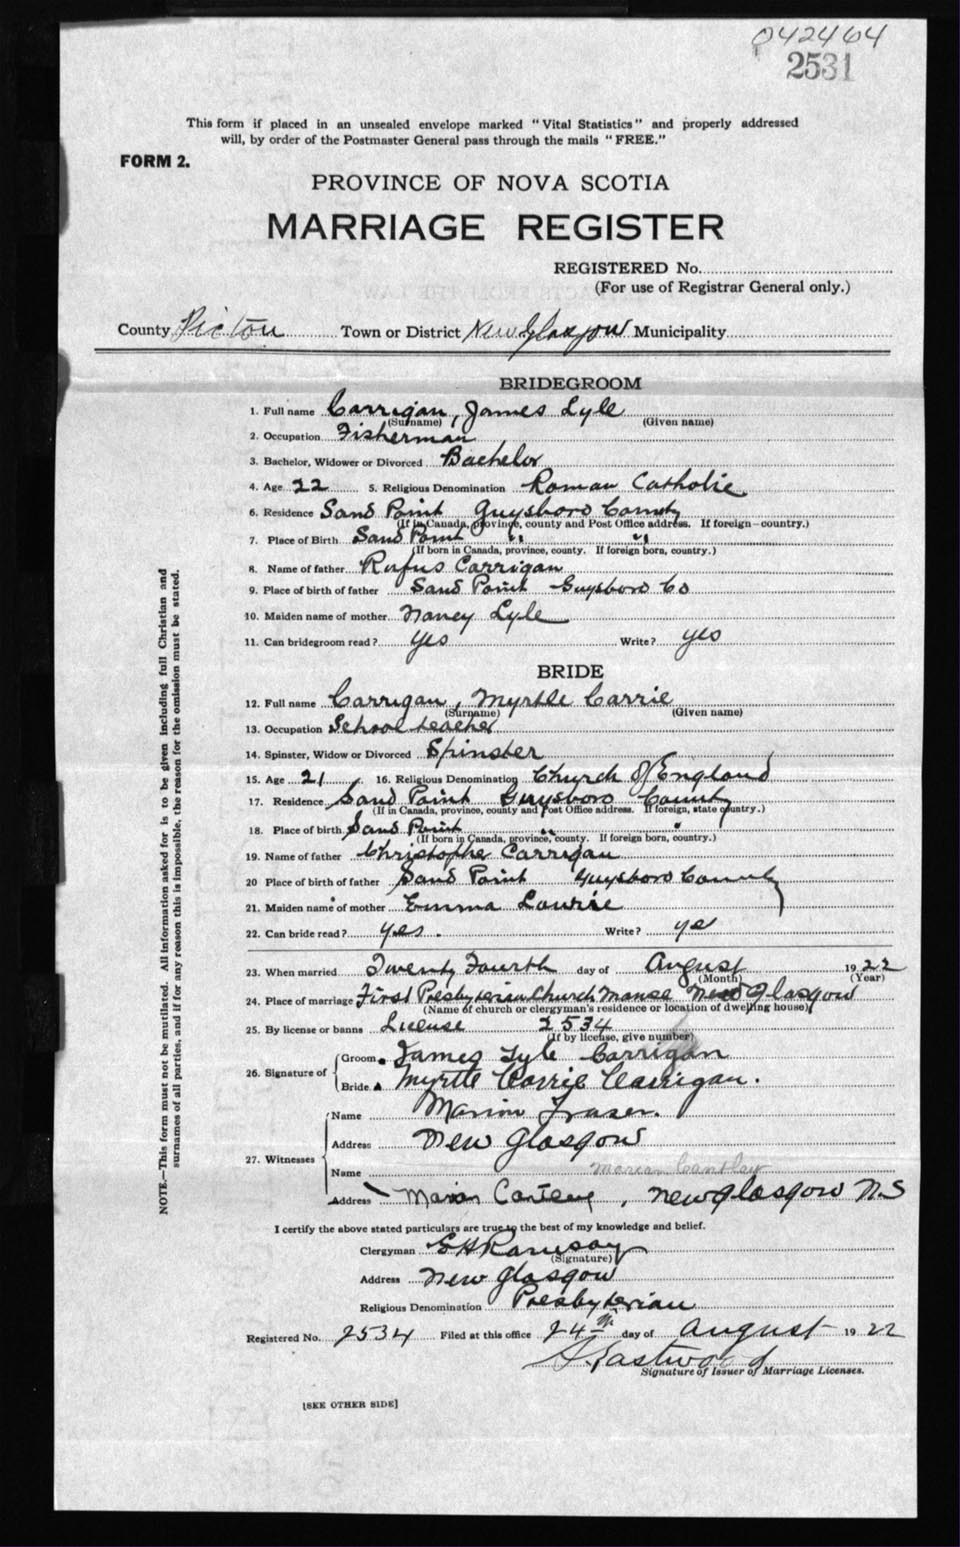 042464
2531
This form if placed in an unsealed envelope marked "Vital Statistics" and properly addressed
will, by order of the Postmaster General pass through the mails "FREE."
FORM 2.
PROVINCE OF NOVA SCOTIA
MARRIAGE REGISTER
REGISTERED No.
(For use of Registrar General only.)
County Pictou Town or District New Glasgow Municipality
BRIDEGROOM
1. Full name Carrigan, James Lyle
(Surname) (Given name)
2. Occupation Fisherman
3. Bachelor, Widower or Divorced Bachelor
4. Age 22 5. Religious Denomination Roman Catholic
6. Residence Sand Point Guysboro County
(If in Canada, province, county and Post Office address. If foreign—country.)
7. Place of Birth Sand Point " "
(If born in Canada, province, county. If foreign born, country.)
8. Name of father Rufus Carrigan
9. Place of birth of father Sand Point Guysboro Co
10. Maiden name of mother Nancy Lyle
11. Can bridegroom read? yes Write? yes
BRIDE
12. Full name Carrigan, Myrtle Carrie
(Surname) (Given name)
13. Occupation School teacher
14. Spinster, Widow or Divorced Spinster
15. Age 21 16. Religious Denomination Church of England
17. Residence Sand Point Guysboro County
(If in Canada, province, county and Post Office address. If foreign, state country.)
18. Place of birth Sand Point " "
(If born in Canada, province, county. If foreign born, country.)
19. Name of father Christophe Carrigan
20 Place of birth of father Sand Point Guysboro County
21. Maiden name of mother Emma Lowrie
22. Can bride read? yes. Write? ye
23. When married Twenty Fourth day of August 1922
(Month) (Year)
24. Place of marriage First Presbyterian Church Manse New Glasgow
(Name of church or clergyman's residence or location of dwelling house)
25. By license or banns License 2534
(If by license, give number)
26. Signature of Groom James Lyle Carrigan
Bride Myrtle Carrie Carrigan.
27. Witnesses Name Marion Fraser.
Address New Glasgow
Name Marian Cantley
Address Marian , New Glasgow N.S
I certify the above stated particulars are true to the best of my knowledge and belief.
Clergyman EH Ramsay
(Signature)
Address New Glasgow
Religious Denomination Presbyterian
Registered No. 2534 Filed at this office 24th day of August 1922
Eastwood
Signature of Issuer of Marriage Licenses.
[SEE OTHER SIDE]
NOTE.—This form must not be mutilated. All information asked for is to be given including full Christian and
surnames of all parties, and if for any reason this is impossible, the reason for the omission must be stated.